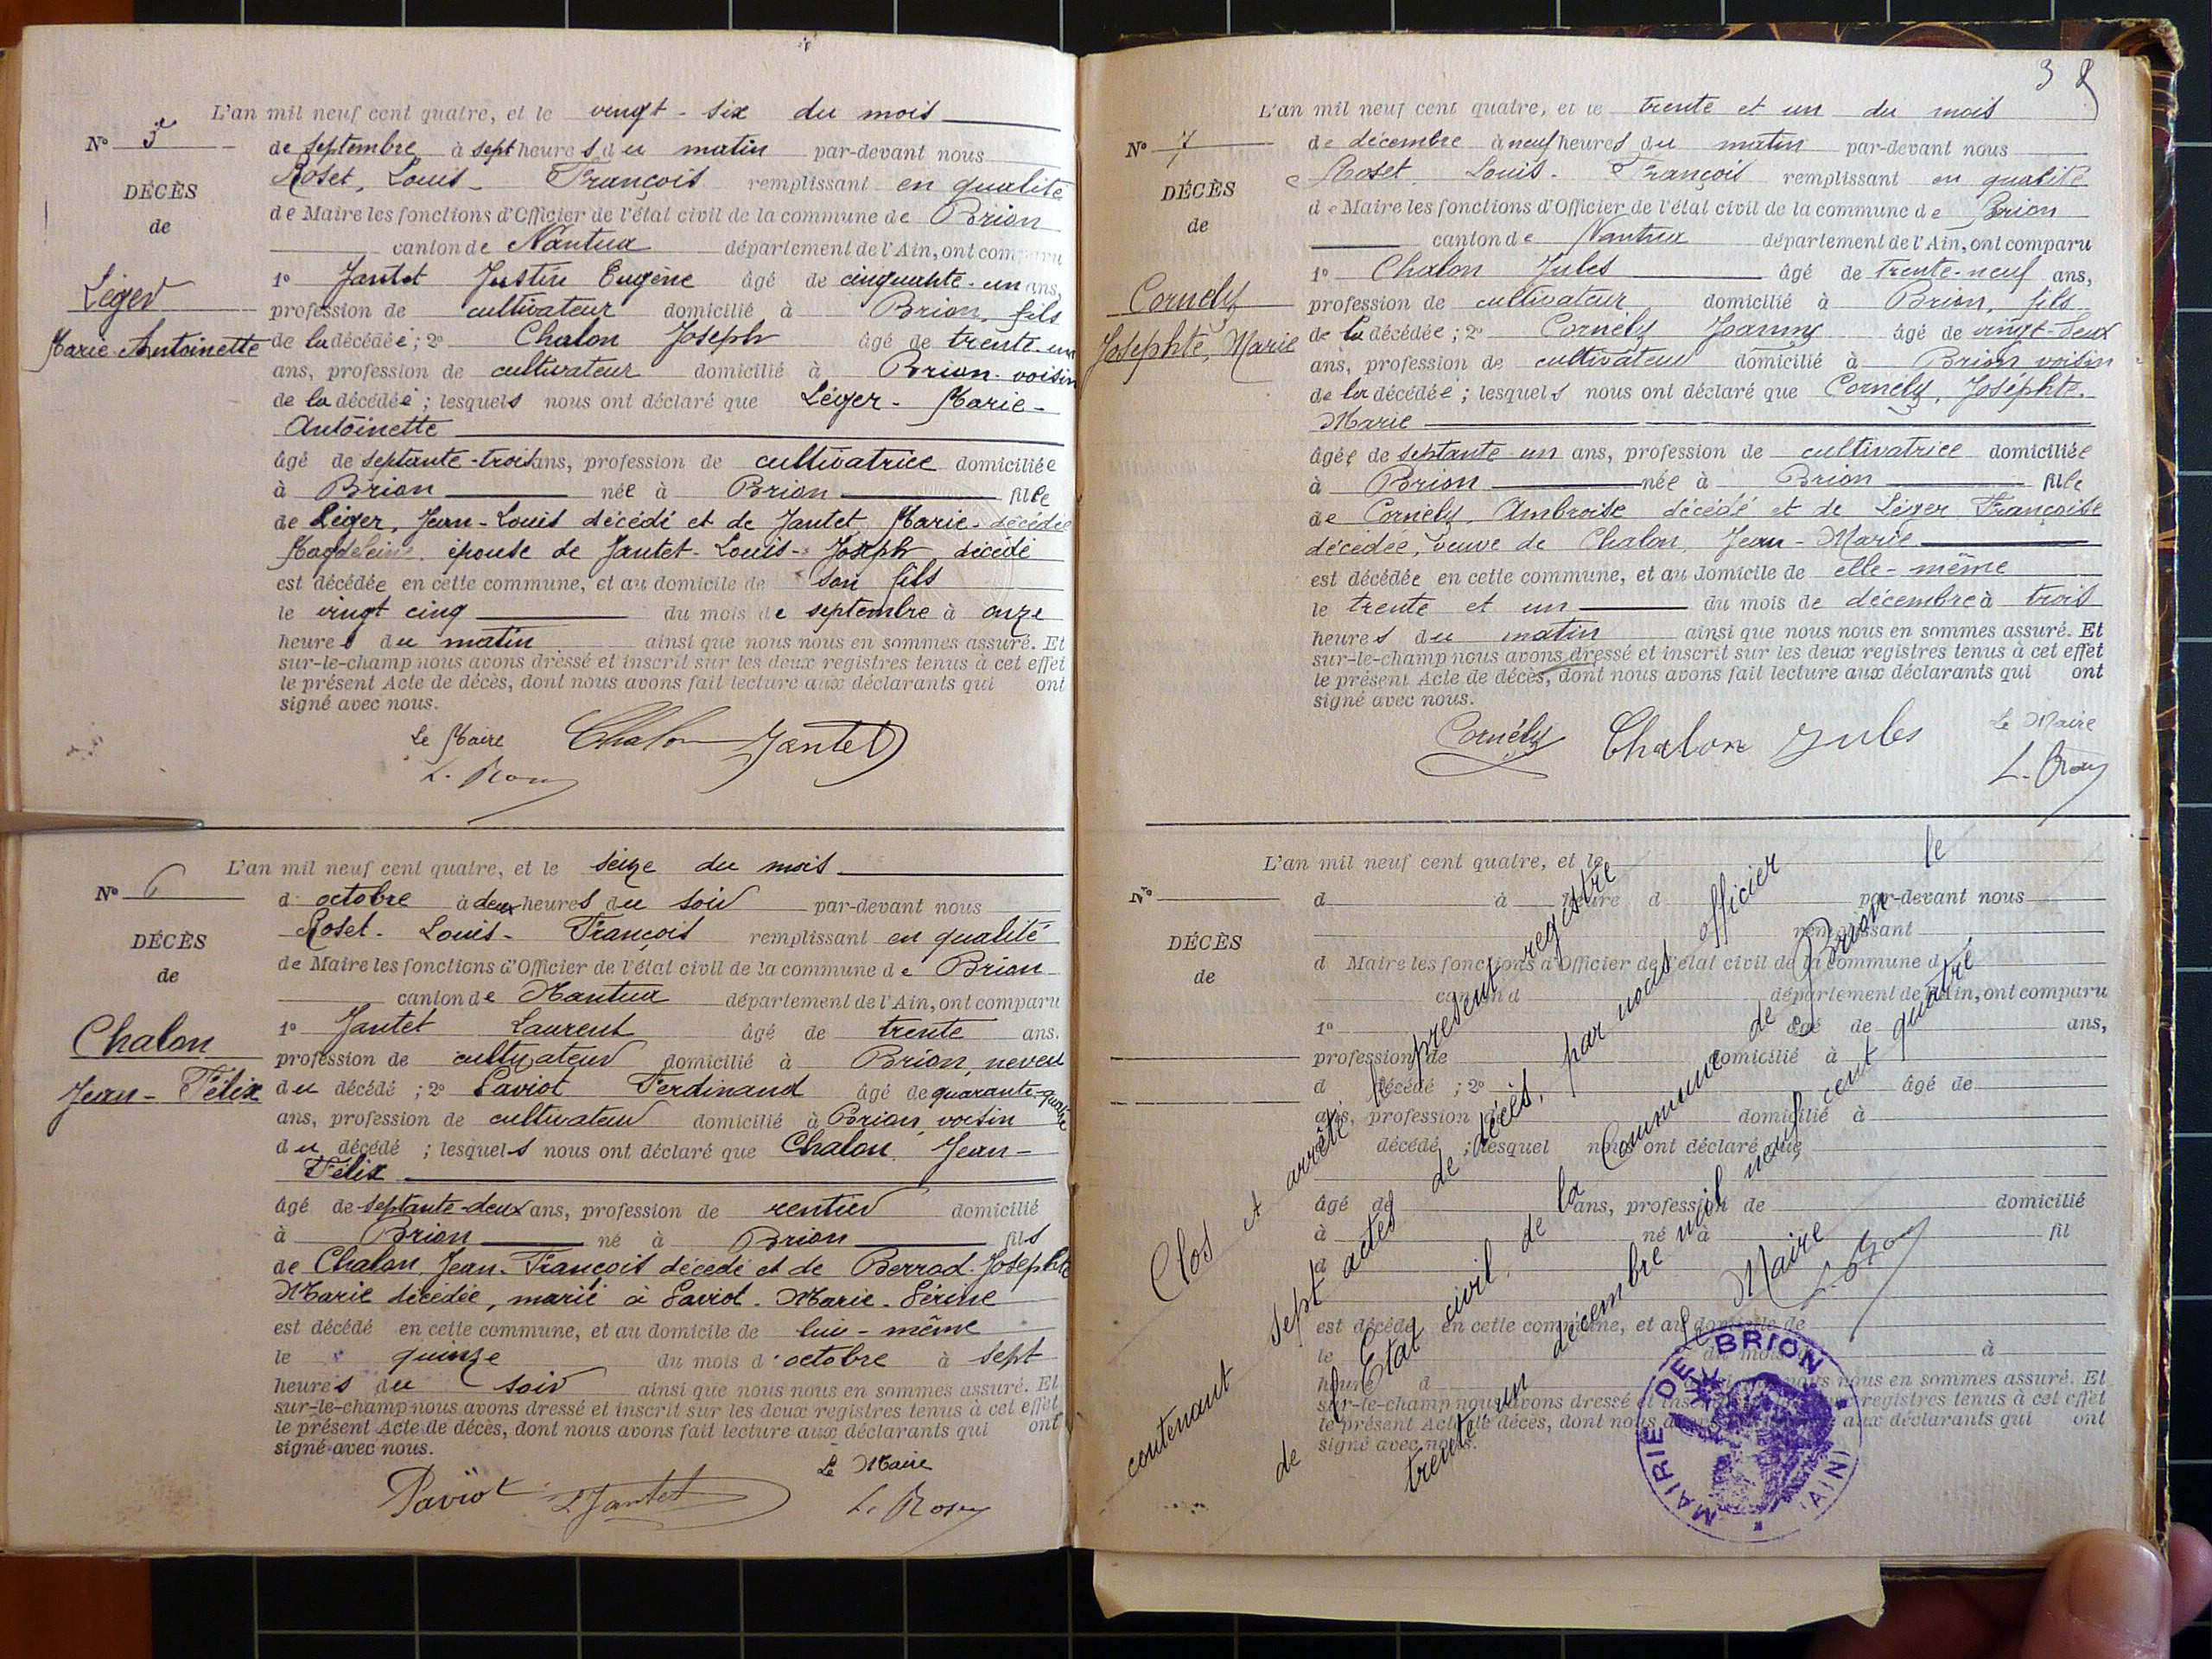 L'an mil neuf cent quatre, et le vingt-six du mois
N° 5
de septembre à sept heures du matin par-devant nous
Roset, Louis-François remplissant en qualité
DÉCÈS
de Maire les fonctions d'Officier de l'état civil de la commune de Brion
de
canton de Nantua département de l'Ain, ont comparu
Léger
Marie Antoinette
1° Jantet Justin Eugène âgé de cinquante-un ans,
profession de cultivateur domicilié à Brion, fils
de la décédée; 2° Chalon Joseph âgé de trente-un
ans, profession de cultivateur domicilié à Brion-voisin
de la décédée; lesquels nous ont déclaré que Léger-Marie-
Antoinette
âgé de septante-trois ans, profession de cultivatrice domiciliée
à Brion née à Brion fille
de Léger, Jean-Louis décédé et de Jantet Marie-décédée
Magdeleine, épouse de Jantet-Louis-Joseph, décédé
est décédée en cette commune, et au domicile de son fils
le vingt cinq du mois de septembre à onze
heures du matin ainsi que nous nous en sommes assuré. Et
sur-le-champ nous avons dressé et inscrit sur les deux registres tenus à cet effet
le présent Acte de décès, dont nous avons fait lecture aux déclarants qui ont
signé avec nous.
Le Maire Chalon Jantet
L'an mil neuf cent quatre, et le seize du mois
N° 6
d'octobre à deux heures du soir par-devant nous
Roset-Louis-François remplissant en qualité
DÉCÈS
de Maire les fonctions d'Officier de l'état civil de la commune de Brion
de
canton de Nantua département de l'Ain, ont comparu
Chalon
Jean-Félix
1° Jantet Laurent âgé de trente ans.
profession de cultivateur domicilié à Brion, neveu
du décédé; 2° Paviot Ferdinand âgé de quarante-quatre
ans, profession de cultivateur domicilié à Brion, voisin
du décédé; lesquels nous ont déclaré que Chalon, Jean-
Félix
âgé de septante-deux ans, profession de rentier domicilié
à Brion né à Brion fils
de Chalon, Jean-François décédé et de Berrod-Josephte
Marie décédée, marié à Paviot-Marie-
est décédé en cette commune, et au domicile de lui-même
le quinze du mois d'octobre à sept
heures du soir ainsi que nous nous en sommes assuré. Et
sur-le-champ nous avons dressé et inscrit sur les deux registres tenus à cet effet
le présent Acte de décès, dont nous avons fait lecture aux déclarants qui ont
signé avec nous.
Le Maire
Paviot L Jantet
38
L'an mil neuf cent quatre, et le trente et un du mois
N° 7
de décembre à neuf heures du matin par-devant nous
Roset, Louis-François remplissant en qualité
DÉCÈS
de Maire les fonctions d'Officier de l'état civil de la commune de Brion
de
canton de Nantua département de l'Ain, ont comparu
Cornély
Josephte, Marie
1° Chalon Jules âgé de trente-neuf ans,
profession de cultivateur domicilié à Brion, fils
de la décédée; 2° Cornély Joanny âgé de vingt-deux
ans, profession de cultivateur domicilié à Brion voisin
de la décédée; lesquels nous ont déclaré que Cornély, Joséphte.
Marie
âgée de septante-un ans, profession de cultivatrice domiciliée
à Brion née à Brion fille
de Cornély, Ambroise décédé et de Léger Françoise
décédée, veuve de Chalon, Jean-Marie
est décédée en cette commune, et au domicile de elle-même
le trente et un du mois de décembre à trois
heures du matin ainsi que nous nous en sommes assuré. Et
sur-le-champ nous avons dressé et inscrit sur les deux registres tenus à cet effet
le présent Acte de décès, dont nous avons fait lecture aux déclarants qui ont
signé avec nous.
Cornély Chalon Jules Le Maire
L'an mil neuf cent quatre, et le
N°
d à heure d par-devant nous
remplissant
DÉCÈS
d Maire les fonctions d'Officier de l'état civil de la commune d
de
canton d département de l'Ain, ont comparu
1° âgé de ans,
profession de domicilié à
d décédé; 2° âgé de
ans, profession d domicilié à
décédé; lesquel nous ont déclaré que
âgé de ans, profession de domicilié
à né à fil
d
est décédé en cette commune, et au domicile de
le du mois à
heure d ainsi que nous nous en sommes assuré. Et
sur-le-champ nous avons dressé et inscrit sur les deux registres tenus à cet effet
le présent Acte de décès, dont nous avons fait lecture aux déclarants qui ont
signé avec nous.
Clos et arrêté le présent registre
contenant sept actes de décès, par nous officier
de l'État civil de la Commune de Brion le
trente un décembre mil neuf cent quatre
Le Maire
MAIRIE DE BRION (AIN)